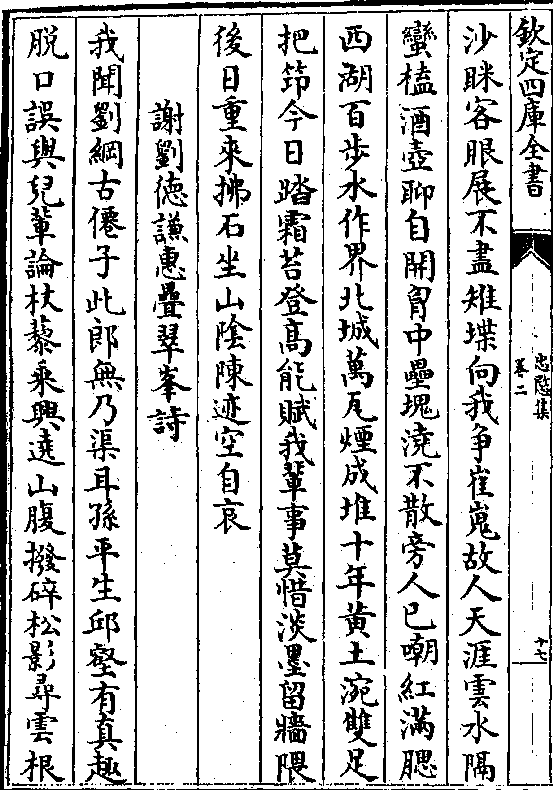 欽定四庫全書
忠愍集
卷二
十七
沙眯客眼展不盡雉堞向我争崔嵬故人天涯雲水隔
蠻榼酒壺聊自開胷中壘塊澆不散旁人已嘲紅滿腮
西湖百步水作界北城萬瓦煙成堆十年黄土涴雙足
把笻今日踏霜苔登髙能賦我輩事莫惜淡墨留牆隈
後日重來拂石坐山陰陳迹空自哀
謝劉徳謙惠疊翠峯詩
我聞劉綱古僊子此郎無乃渠耳孫平生邱壑有真趣
脱口誤與兒輩論杖藜乘興遶山腹撥碎松影尋雲根